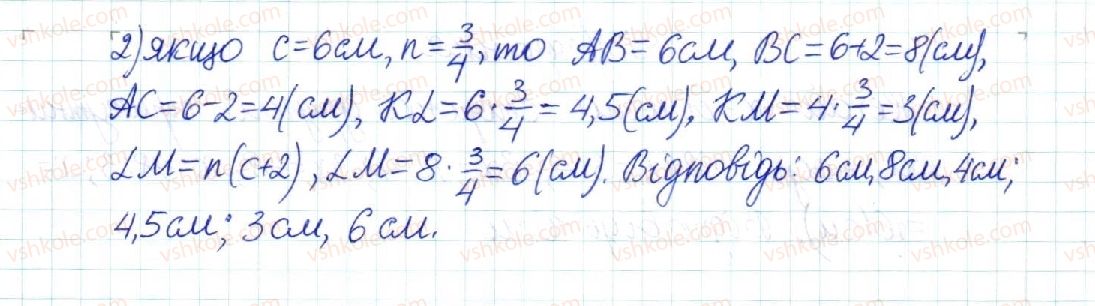 2) якщо c=6см, n=3/4, то AB=6см, BC=6+2=8(см),
AC=6-2=4(см), KL=6·3/4=4,5(см), KM=4·3/4=3(см),
LM=n(c+2), LM=8·3/4=6(см). Відповідь: 6см, 8см, 4см;
4,5см; 3см, 6см.